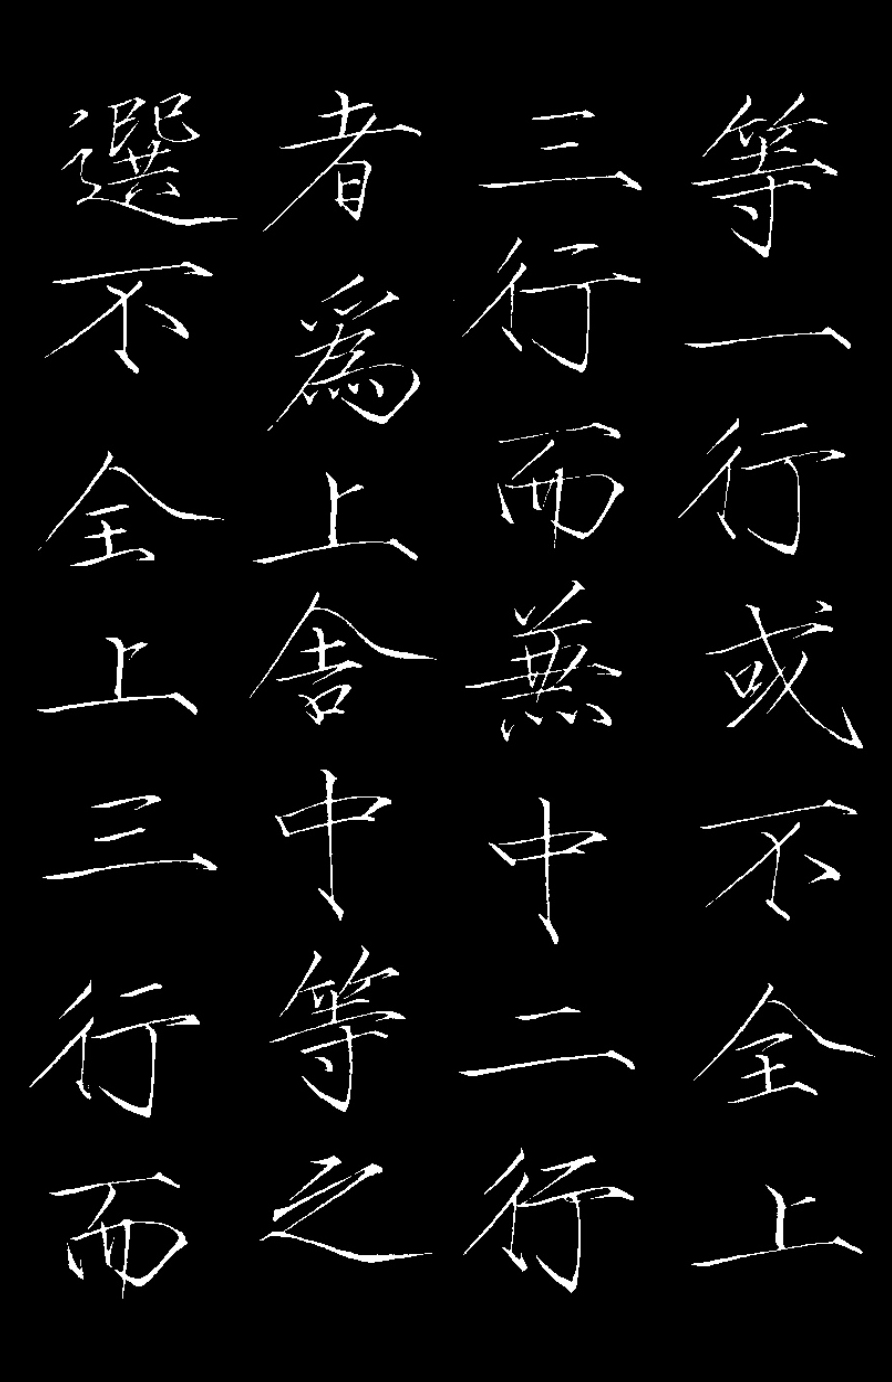 等一行或不全上
三行而兼中二行
者為上舍中等之
選不全上三行而